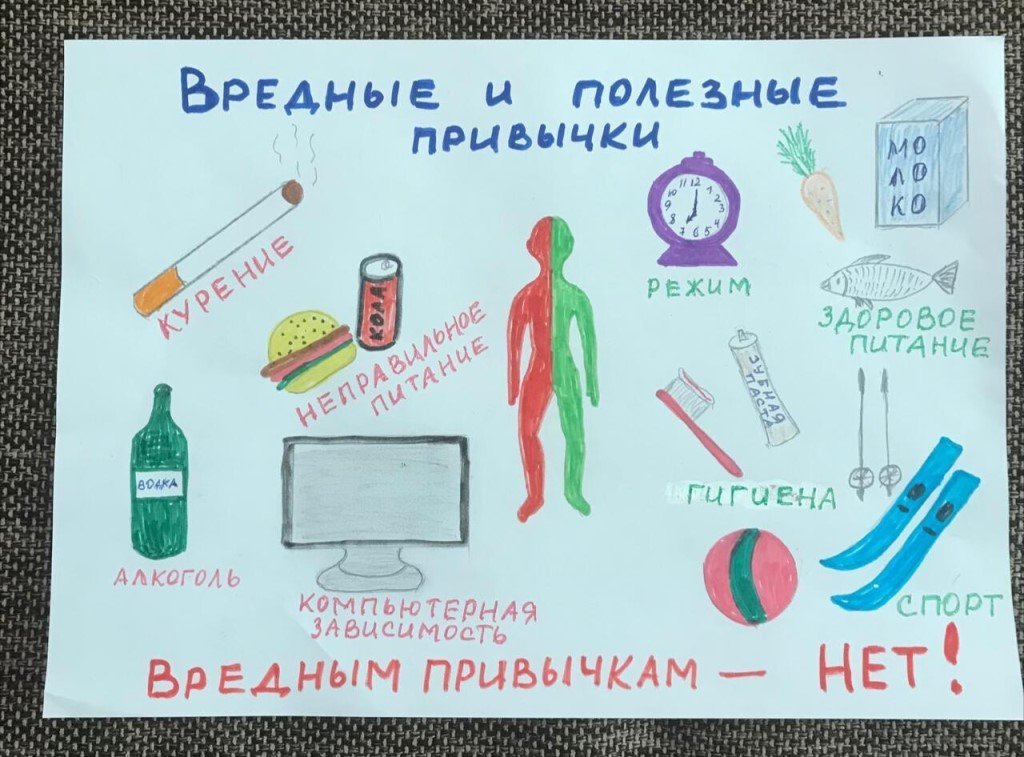 ВРЕДНЫЕ И ПОЛЕЗНЫЕ
ПРИВЫЧКИ
КУРЕНИЕ
КОЛА
НЕПРАВИЛЬНОЕ
ПИТАНИЕ
ВОДКА
АЛКОГОЛЬ
КОМПЬЮТЕРНАЯ
ЗАВИСИМОСТЬ
11 12 1
10 2
9 3
8 4
7 6 5
РЕЖИМ
МО
ЛО
КО
ЗДОРОВОЕ
ПИТАНИЕ
ЗУБНАЯ
ПАСТА
ГИГИЕНА
СПОРТ
ВРЕДНЫМ ПРИВЫЧКАМ — НЕТ!